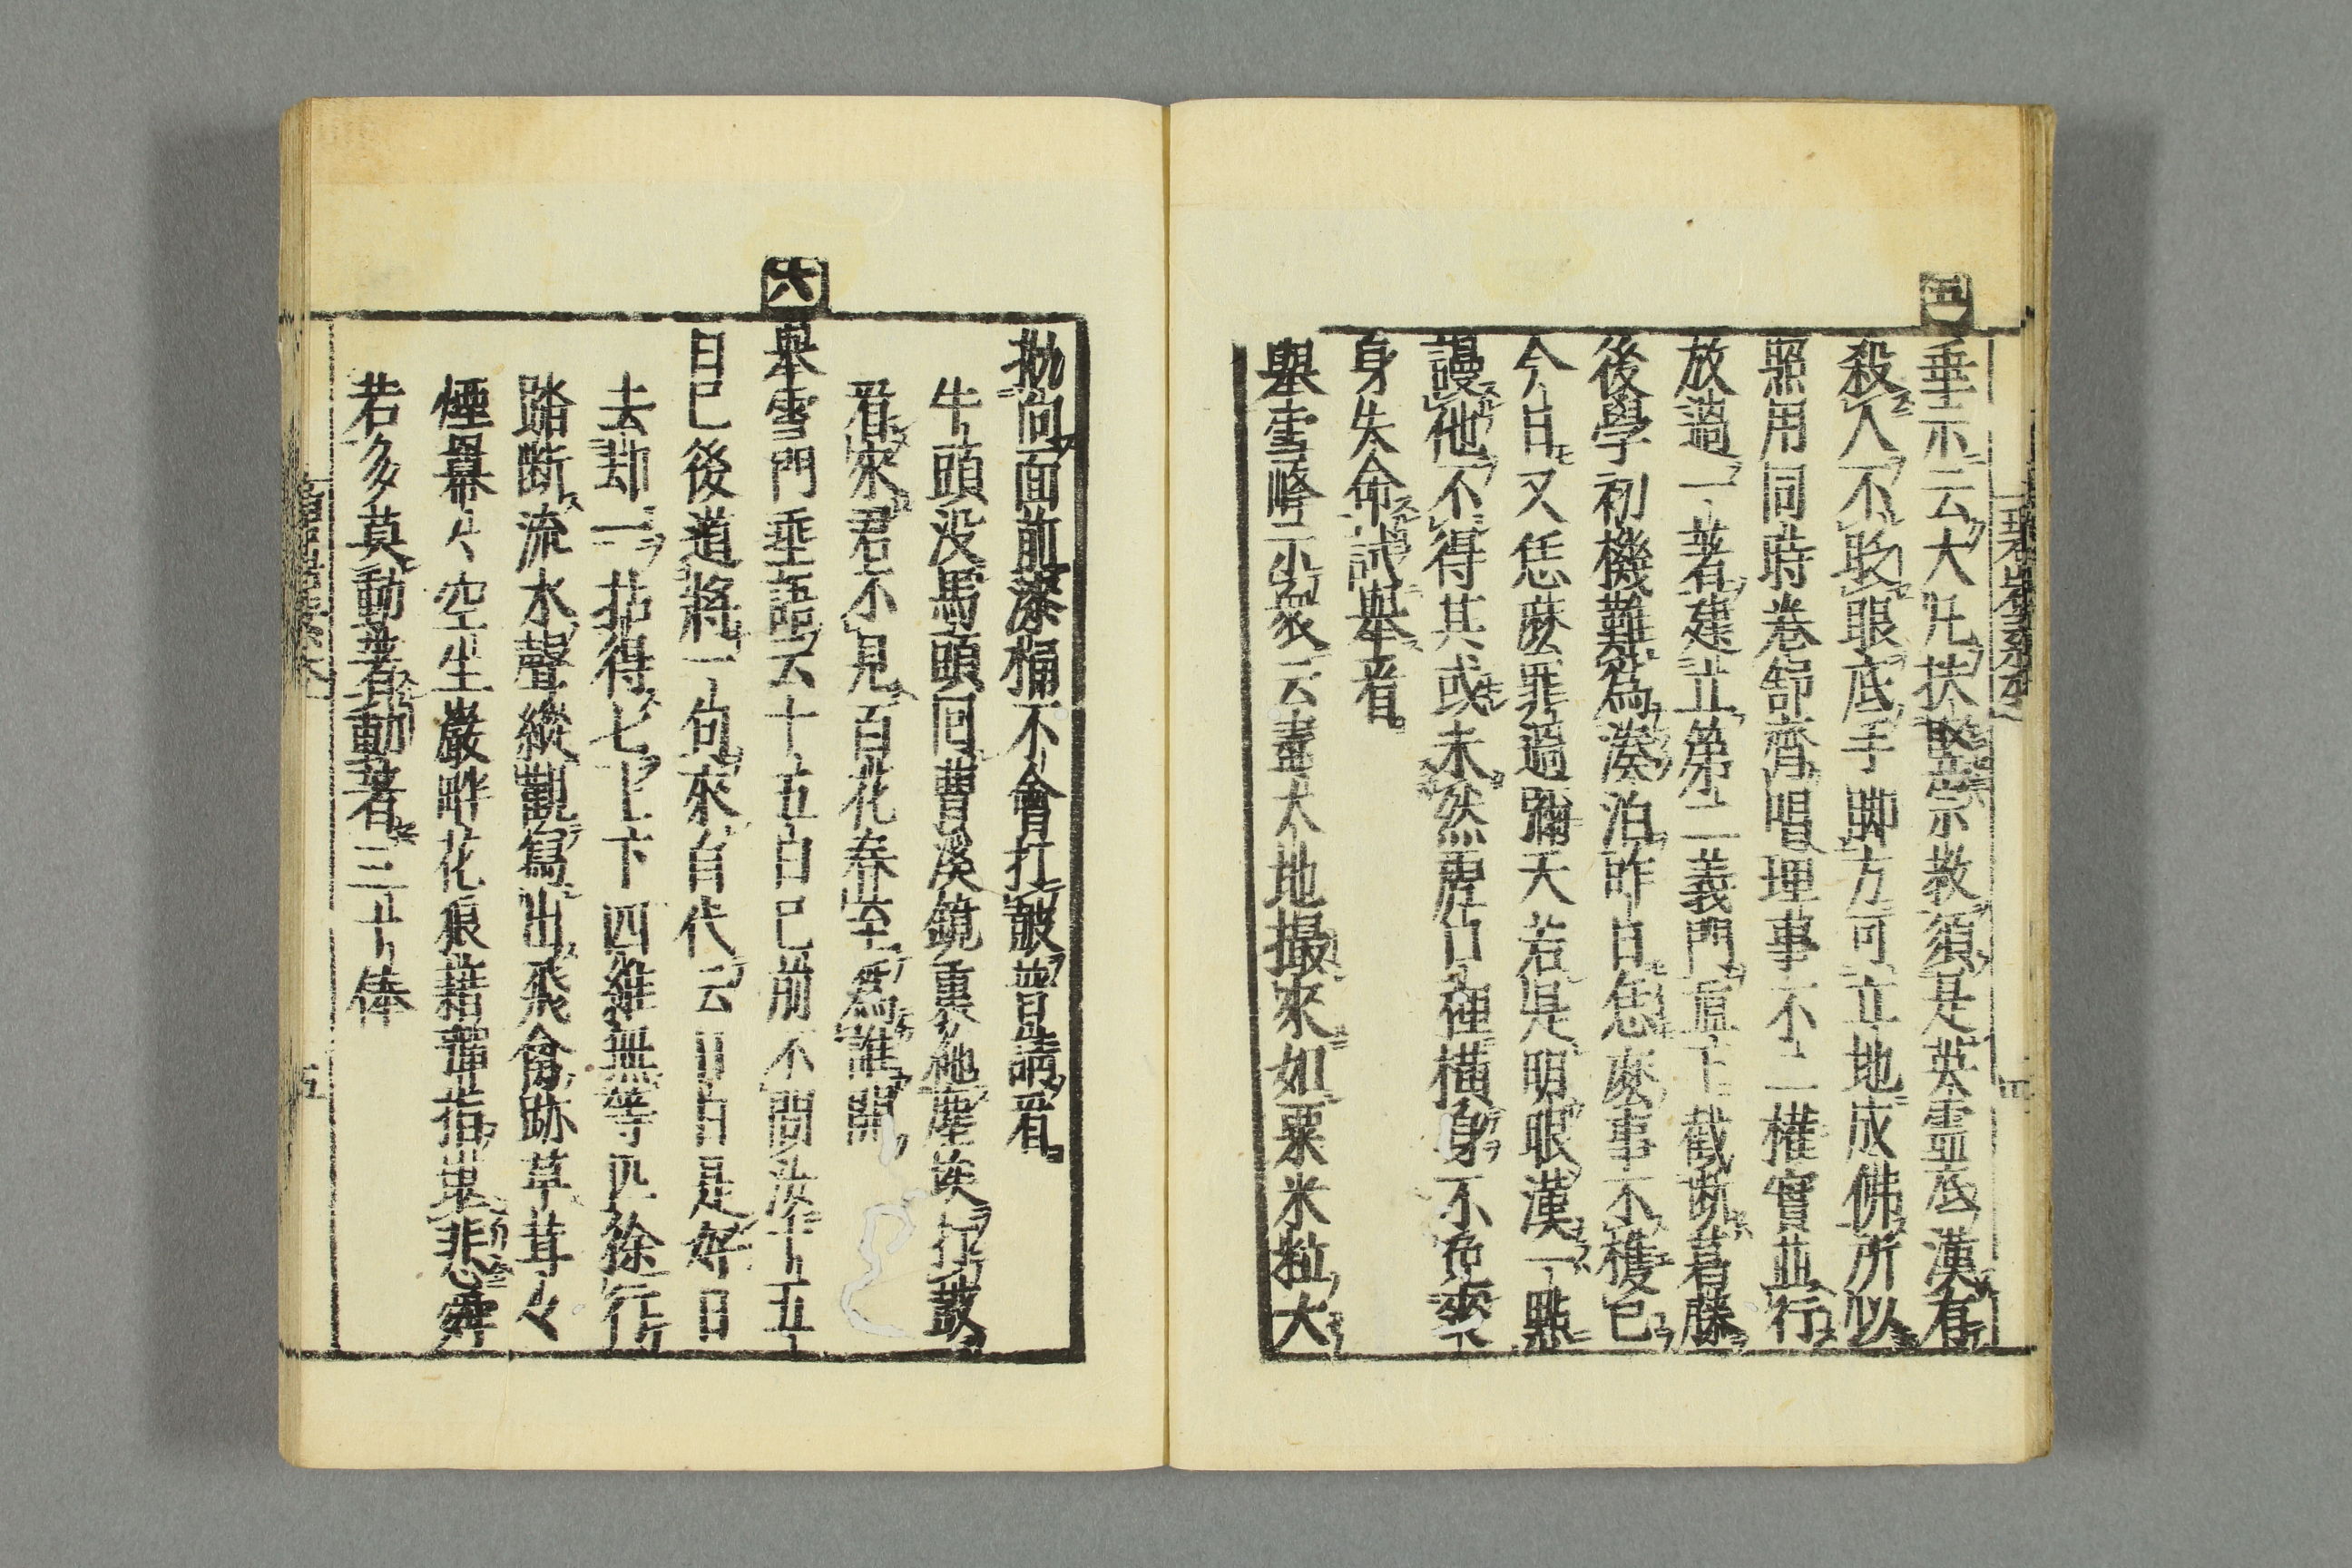 五
垂示云大凡扶竪宗教須是英霊底漢有
殺人不眨眼底手脚方可立地成佛所以
照用同時卷舒齊唱理事不二權實並行
放過一著建立第二義門直下截断葛藤
後學初機難爲湊泊昨日恁麽事不獲已
今日又恁麽罪過彌天若是明眼漢一點
謾他不得其或未然虎口裡橫身不免喪
身失命試舉看
舉雪峰示衆云盡大地撮來如粟米粒大
抛向面前漆桶不會打皷普請看
牛頭没馬頭回曹溪鏡裏絶塵埃打皷
看來君不見百花春至爲誰開
六
舉雲門垂語云十五日已前不問汝十五
日已後道將一句來自代云日日是好日
去却一拈得七上下四維無等匹徐行
踏断流水聲縱觀寫出飛禽跡草茸々
煙羃々空生巖畔花狼藉彈指堪悲舜
若多莫動著動著三十棒
五